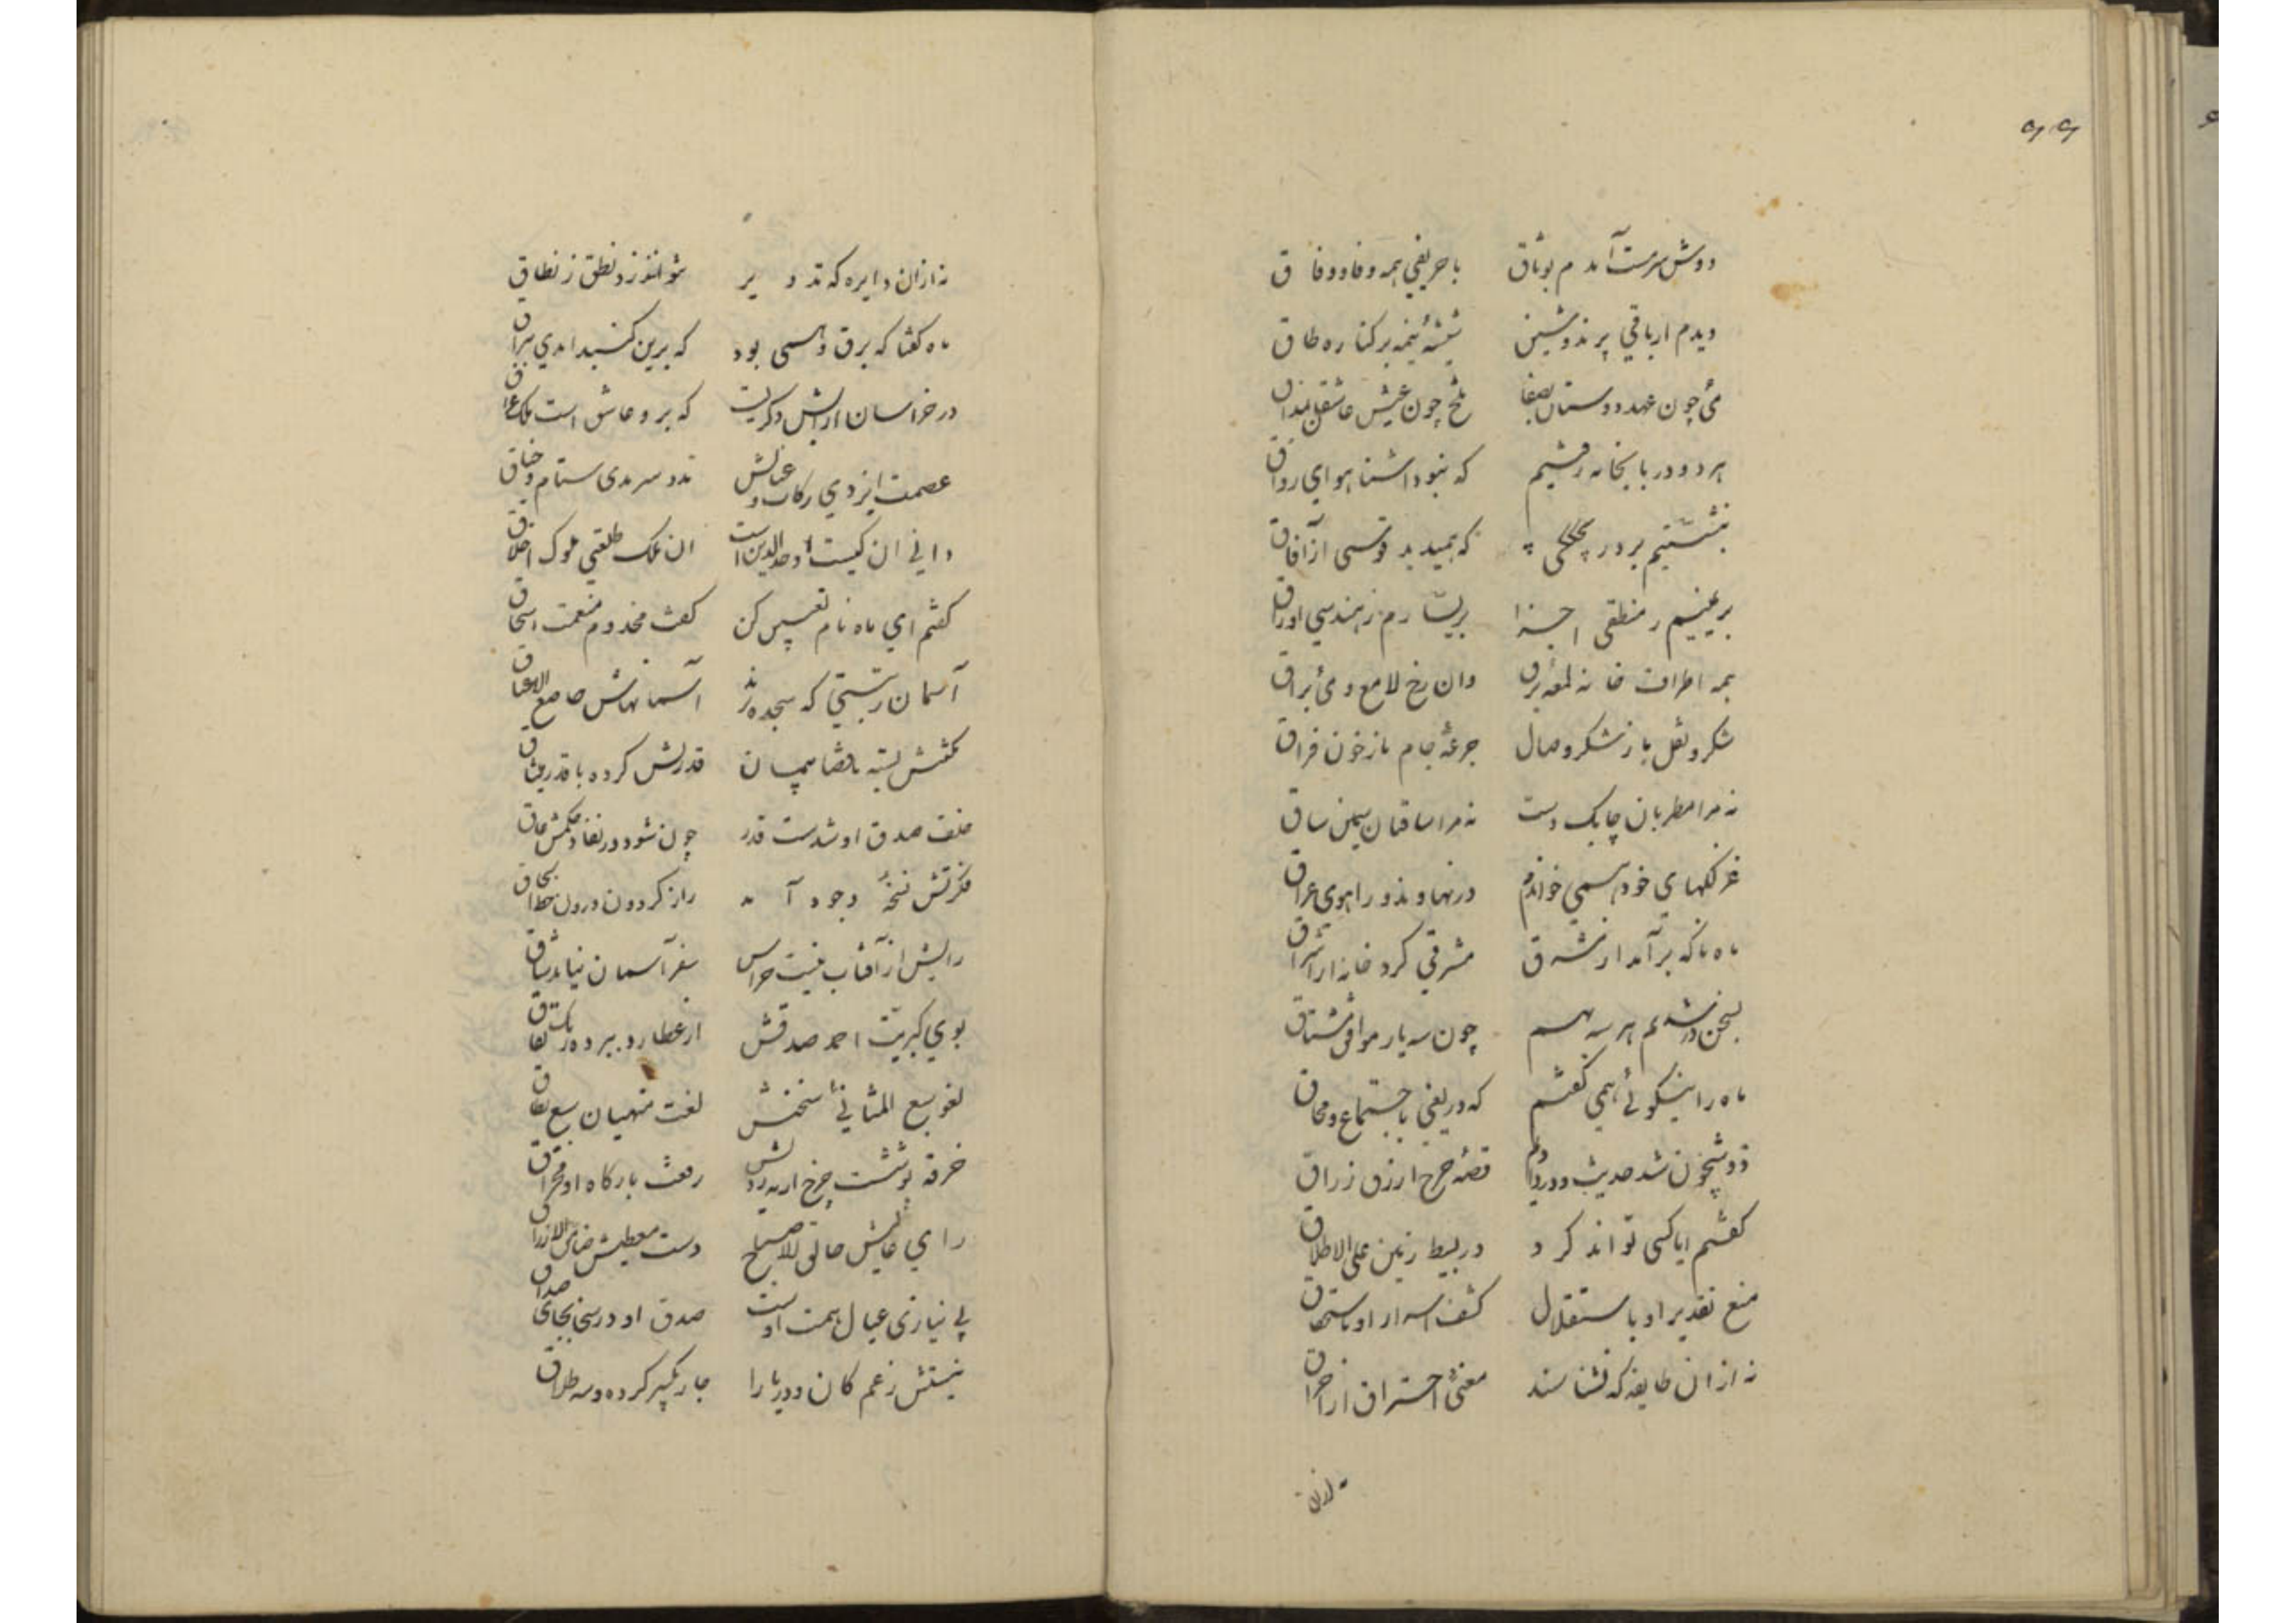 ۶۶
دوش سرمست آمدم بوثاق با حریفی همه وفا و وفاق
دیدم از باقی پرندوشین شیشهٔ نیمه بر کناره طاق
می چون عهد دوستان بصفا تلخ چون عیش عاشقان بمذاق
هر دو در تابخانه رفتیم که نبود آشنا هوای رواق
بنشستیم بر دریچککی که همیدید قوسی از آفاق
بر یمینم ز منطقی اجزا بر یسارم ز هندسی اوراق
همه اطراف خانه لمعهٔ برق زان رخ لامع و می براق
شکر و نقل ما ز شکر وصال جرعهٔ جام ما ز خون فراق
نه مرا مطربان چابک دست نه مرا ساقیان سیمین ساق
غزلکهای خود همی خواندم در نهاوند و راهوی عراق
ماه ناگه برآمد از مشرق مشرقی کرد خانه از اشراق
بسخن در شدیم هر سه بهم چون سه یار موافق مشتاق
ماه را نیکوئی همی گفتم که دریغی باجتماع و محاق
قصه چرخ ازرق زراق
گفتم ایا کسی تواند کرد در بسیط زمین علی الاطلاق
منع تقدیر او باستقلال کشف اسرار او باستحقاق
نه ازان طایفه که نشناسند معنی احتراق از احراق
نه ازان
نه ازان دایره که تدویر نتوانند زد نطق ز نطاق
ماه گفتا که برق وهمی بود که برین گنبد امدی ببراق
در خراسان ازایش دگریست که برو عاشق است ملک عراق
عصمت ایزدی رکاب و عنانش مدد سرمدی ستام و جناق
دانی ان کیست اوحدالدین است ان ملک طلعتی ملوک اخلاق
گفتم ای ماه نام تعیین کن گفت مخدوم و منعمت اسحاق
آسمان رتبتی که سجده برند آسمانهاش خاضع الاعناق
کلکش بسته با قضا پیمان قدرتش کرده با قدر میثاق
ضعف صدق او شدست قدر چون شود در نفاذ حکمش عاق
فکرتش نسخهٔ وجود آمد راز گردون درون خط الحاق
رایش از آفتاب نیست حواس سفر آسمان نیاید شاق
بوی کبریت احمر صدقش از عطارد ببرده رنگ نفاق
لغو سبع المثانی سخنش لغت منهیان سبع طباق
خرقه پوشست چرخ ازرق رفعت بارگاه او مخراق
رای عالیش فالق الاصباح دست معطیش ضامن الارزاق
بی نیازی عیال همت اوست صدق او در سخا بجای صداق
نیستش زعم کان و دریا را چار تکبیر کرده و سه طلاق